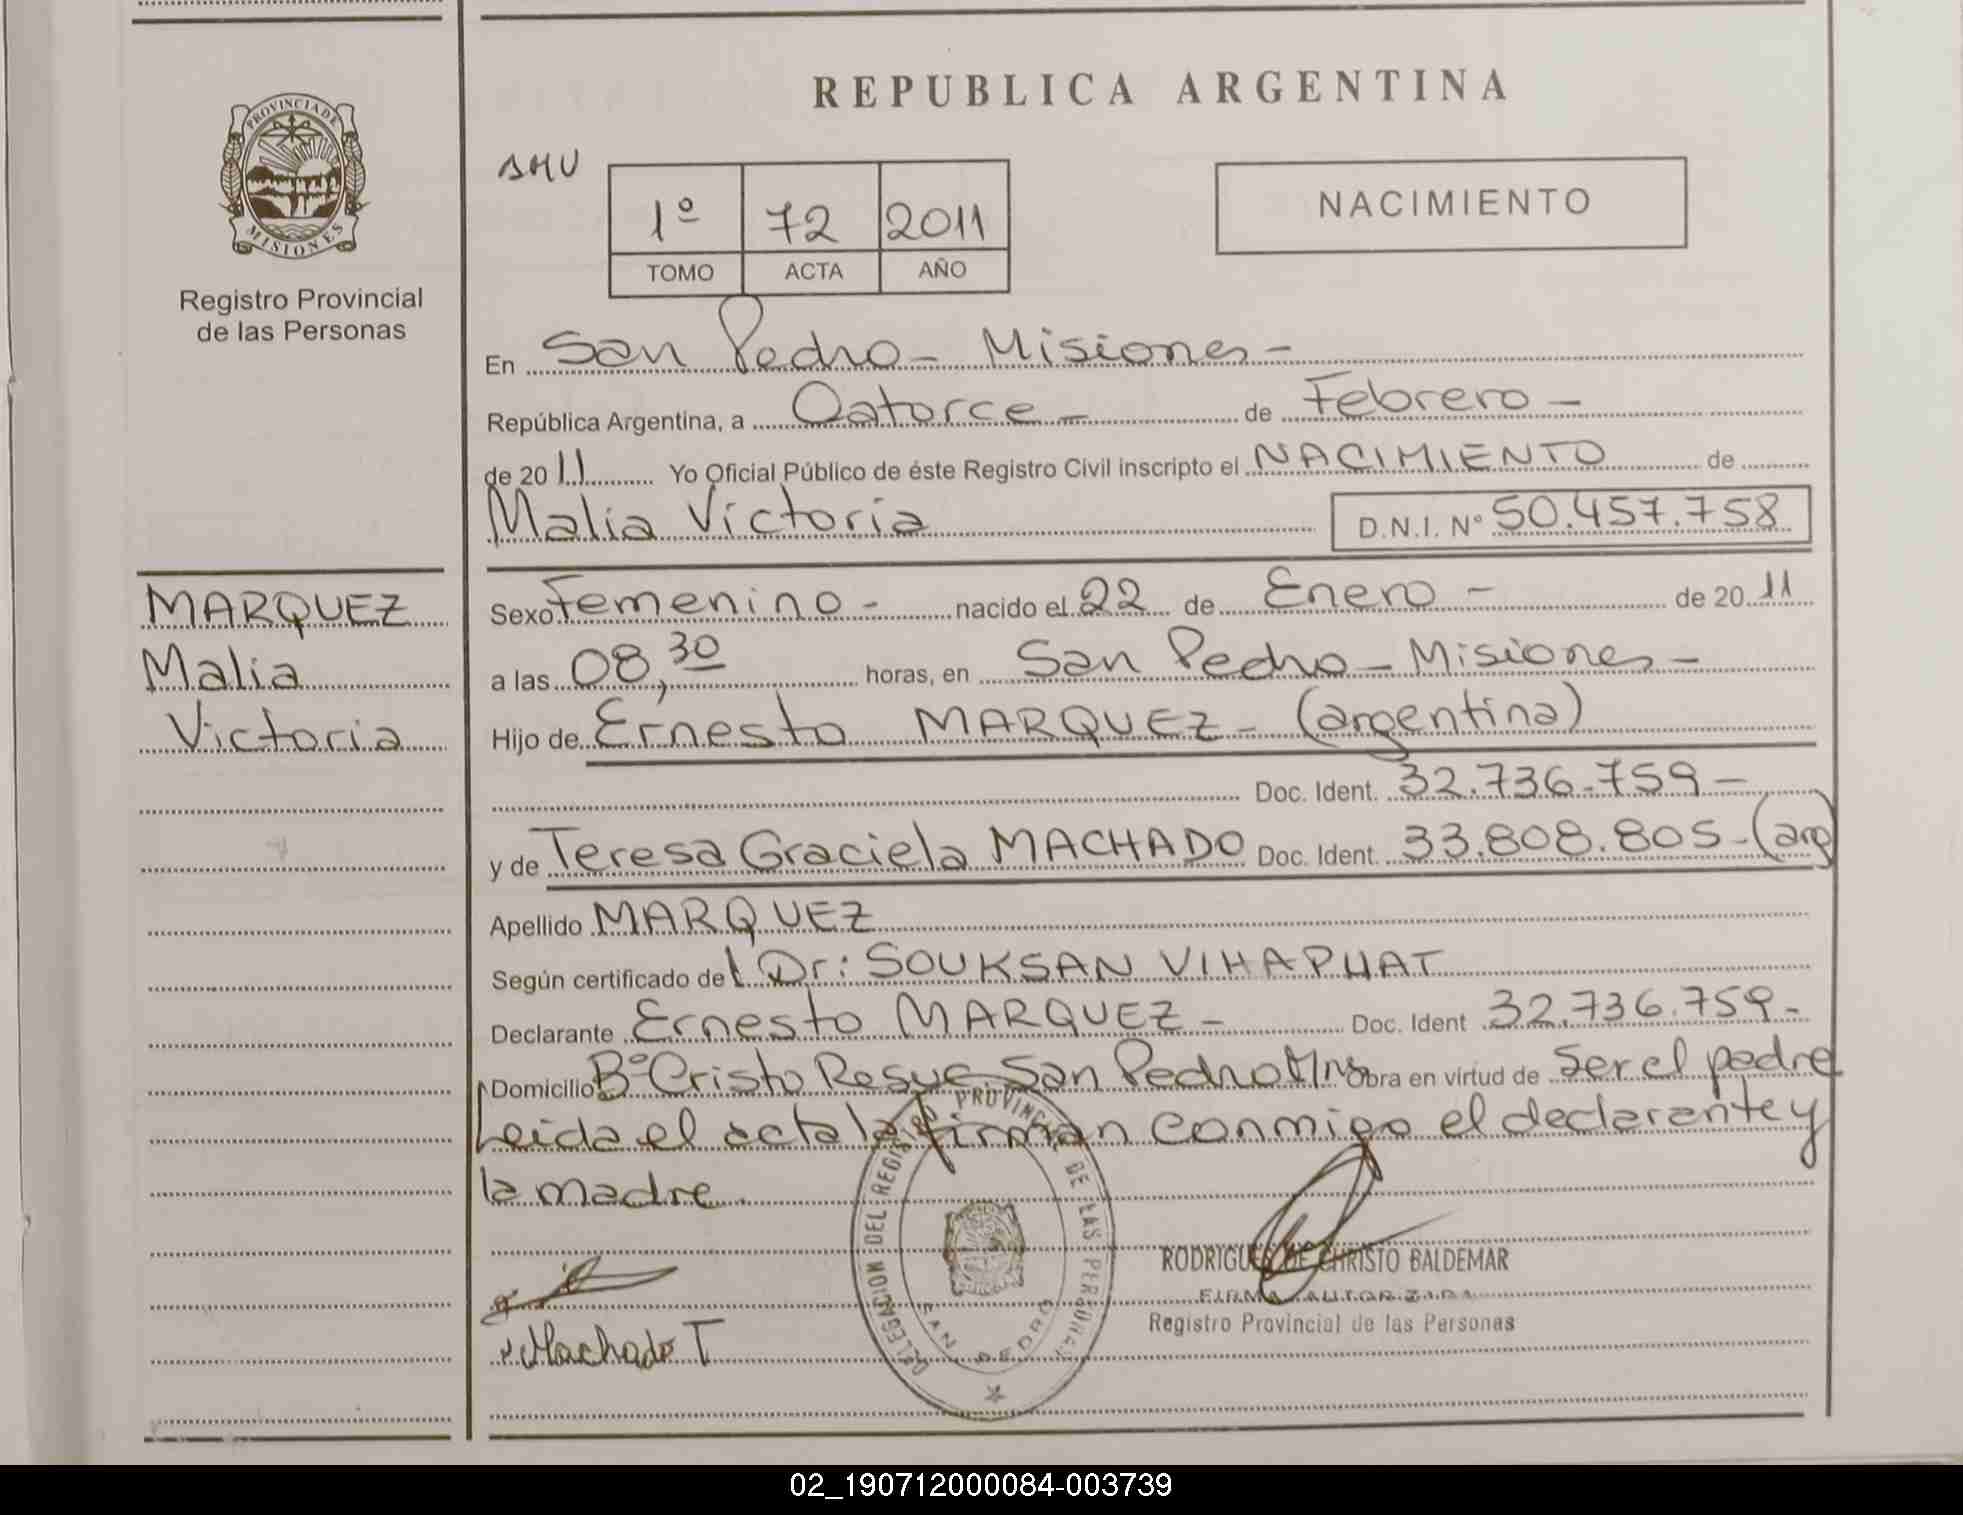 PROVINCIA DE
MISIONES
Registro Provincial
de las Personas
MARQUEZ
Malia
Victoria
REPUBLICA ARGENTINA
1º 72 2011
TOMO ACTA AÑO
NACIMIENTO
En San Pedro - Misiones -
República Argentina, a Catorce - de Febrero -
de 2011 Yo Oficial Público de éste Registro Civil inscripto el NACIMIENTO de
Malia Victoria D.N.I. Nº 50.457.758
Sexo Femenino - nacido el 22 de Enero - de 2011
a las 08,30 horas, en San Pedro - Misiones -
Hijo de Ernesto MARQUEZ - (argentina)
Doc. Ident. 32.736.759 -
y de Teresa Graciela MACHADO Doc. Ident. 33.808.805 - (arg)
Apellido MARQUEZ
Según certificado del Dr: SOUKSAN VIHAPHAT
Declarante Ernesto MARQUEZ - Doc. Ident 32.736.759 -
Domicilio Bº Cristo Resuc. San Pedro Mns Obra en virtud de ser el padre
Leida el acta la firman conmigo el declarante y
la madre.
DELEGACION DEL REGISTRO PROVINCIAL DE LAS PERSONAS
SAN PEDRO
RODRIGUES DE CHRISTO BALDEMAR
FIRMA AUTORIZADA
Registro Provincial de las Personas
Machado T
02_190712000084-003739